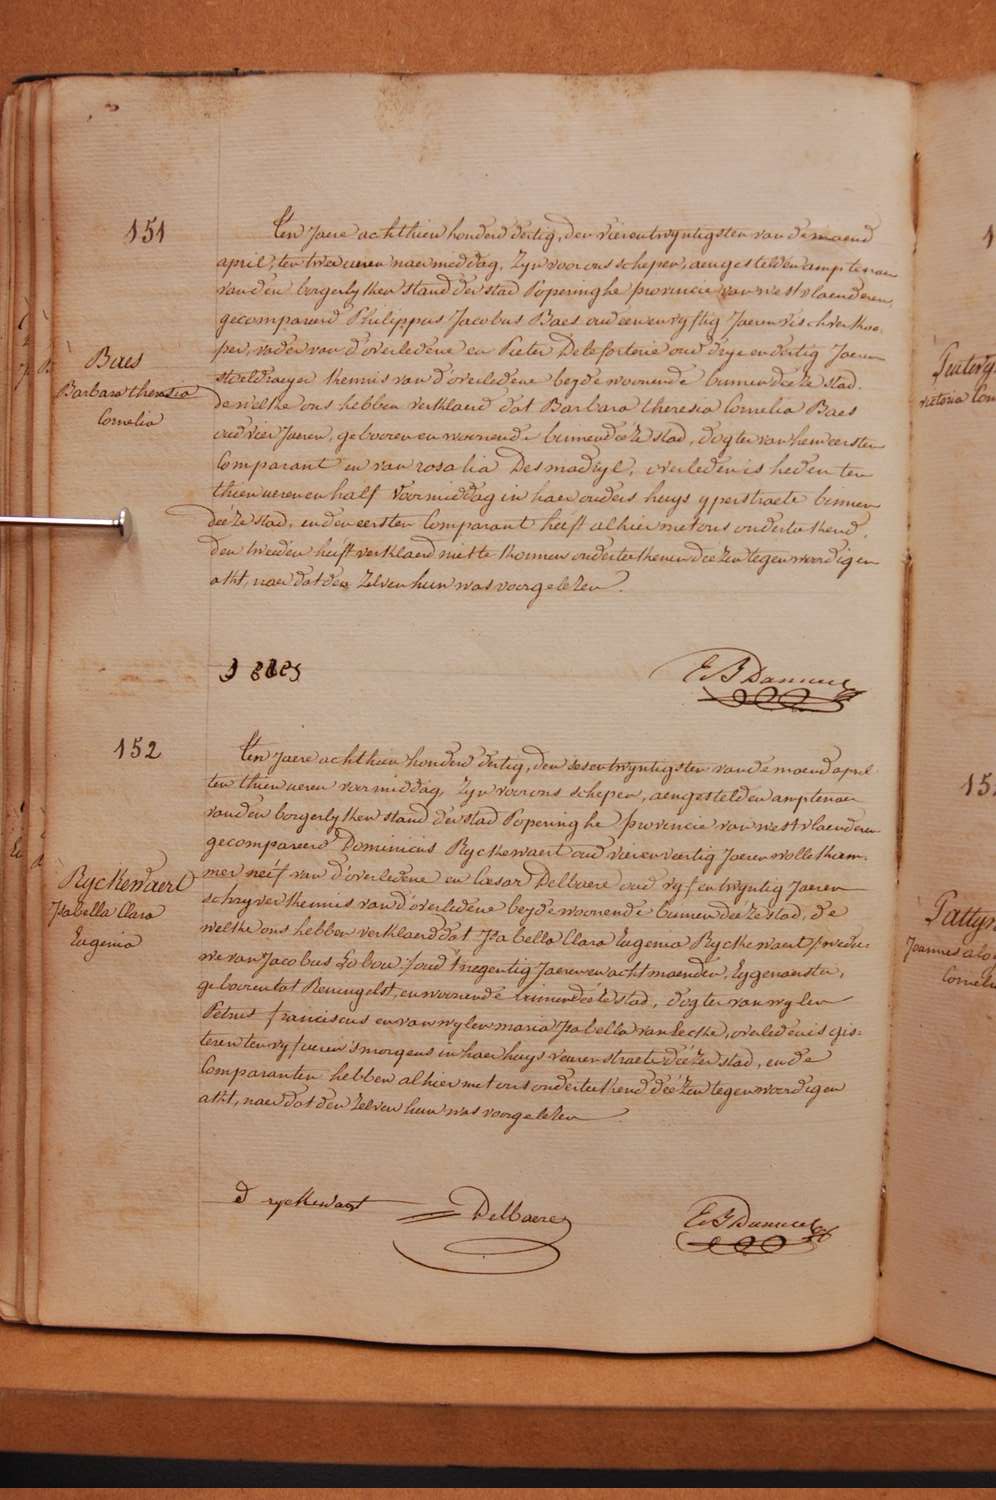 151
Baes
Barbara theresia
Cornelia
Ten Jaere achthien honderd dertig, den vierentwyntigsten van de maend
april, ten twee ueren naermiddag, Zyn voor ons schepen, aengestelden amptenaer
van den borgerlyken stand der stad Poperinghe provincie van westvlaenderen,
gecompareerd Philippus Jacobus Baes oud eenenvyftig Jaeren vischverkoo-
per, vader van d'overledene en Pieter Deleforterie oud dryendertig Jaeren
stoeldraeyer kennis van d'overledene beyde woonende binnen deéze stad.
de welke ons hebben verklaerd dat Barbara theresia Cornelia Baes
oud vier Jaeren, gebooren en woonende binnen deéze stad, dogter van hem eersten
Comparant en van rosalia Desmadryl, overleden is heden ten
thien ueren en half voormiddag in haer ouders huys yperstraete binnen
deéze stad, en den eersten Comparant heéft alhier met ons onderteekend,
den tweeden heéft verklaerd niet te konnen onderteekenen deézen tegenwoordigen
akt, naer dat den zelven hun was voorgelezen.
152
Ryckewaert
Isabella Clara
Eugenia
Ten Jaere achthien honderd dertig, den sesentwyntigsten van de maend april
ten thien ueren voormiddag, Zyn voor ons schepen, aengestelden amptenaer
van den borgerlyken stand der stad Poperinghe provincie van westvlaenderen
gecompareerd Dominicus Ryckewaert oud vierenveertig Jaeren wollekam-
mer neéf van d'overledene en Cæsar Delbaere oud vyfentwyntig Jaeren
schryver kennis van d'overledene beyde woonende binnen deéze stad, de
welke ons hebben verklaerd dat Isabella Clara Eugenia Ryckewaert /:wedu-
we van Jacobus Lobou:/ oud t'negentig Jaeren en acht maenden, Eygenaerster,
gebooren tot Reningelst, en woonende binnen deéze stad, dogter van wylen
Petrus franciscus en van wylen maria Isabella van lecke, overleden is gis-
teren ten vyf ueren 's morgens in haer huys veurenstraete deézer stad, en de
Comparanten hebben alhier met ons onderteekend deézen tegenwoordigen
akt, naer dat den zelven hun was voorgelezen
d ryckewaert
Delbaere